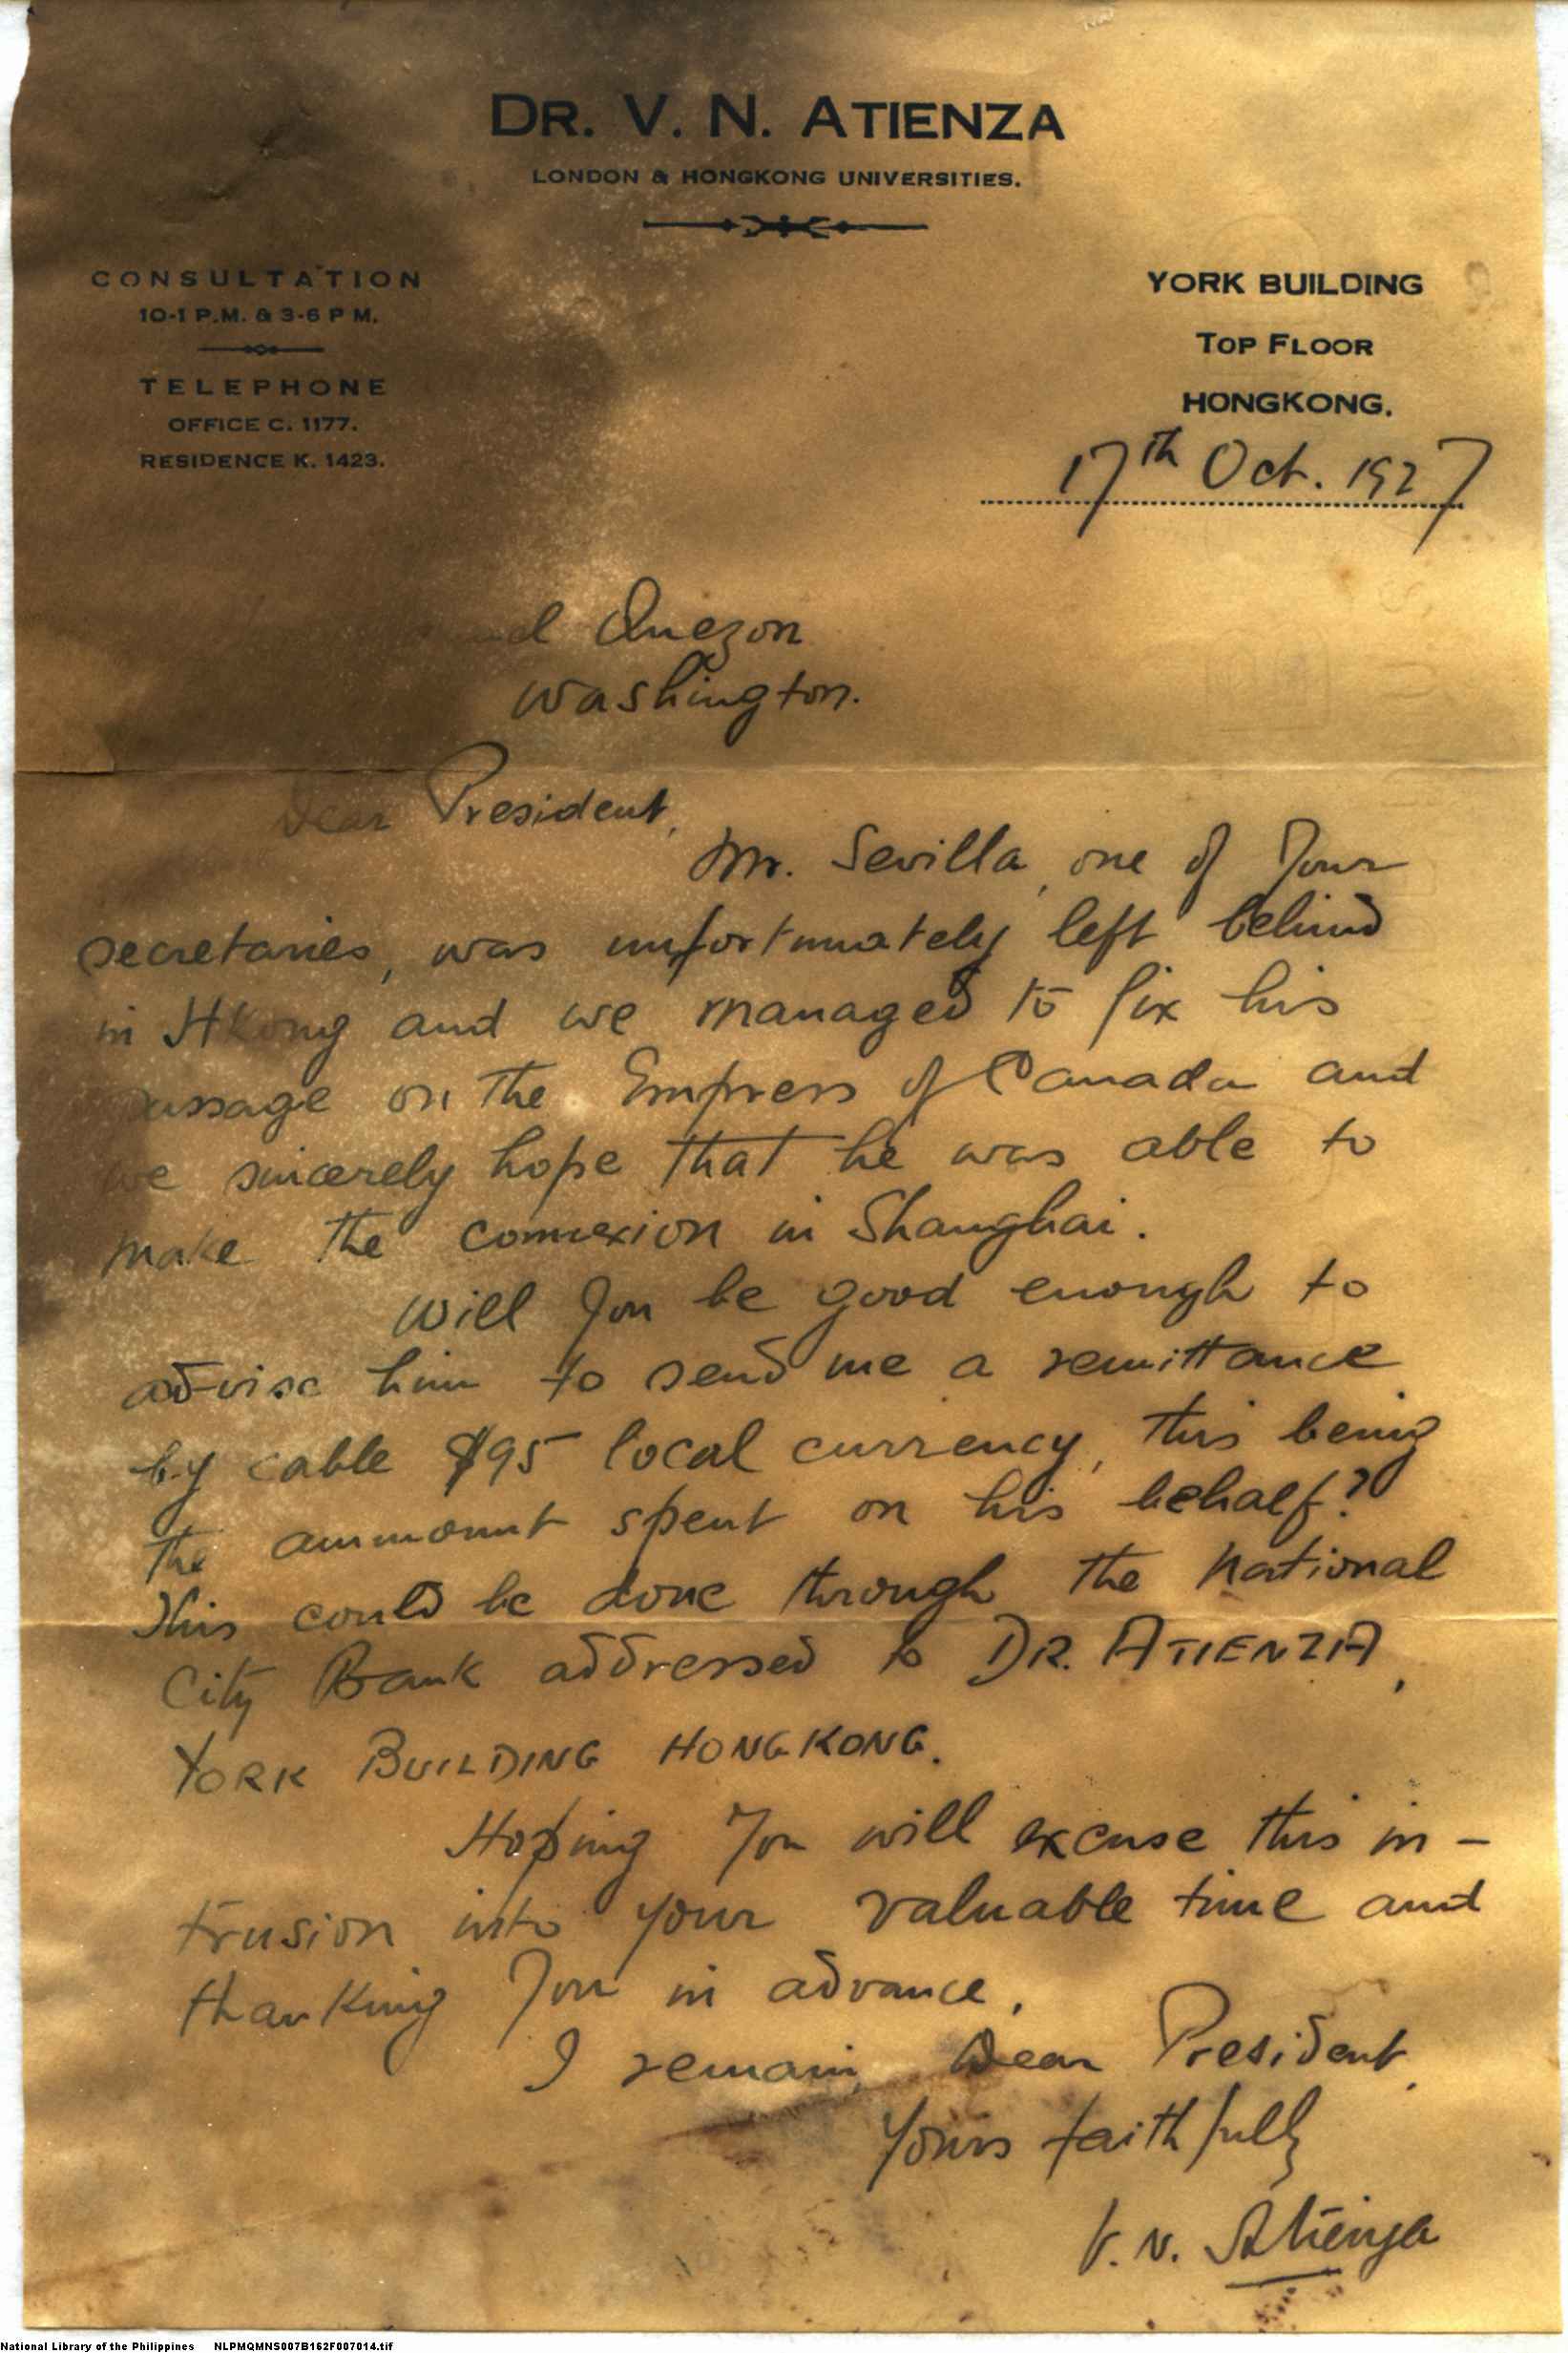 DR. V. N. ATIENZA
LONDON & HONGKONG UNIVERSITIES.
CONSULTATION
10-1 P.M. & 3-6 P M.
TELEPHONE
OFFICE C. 1177.
RESIDENCE K. 1423.
YORK BUILDING
TOP FLOOR
HONGKONG.
17th Oct. 1927
Quezon
Washington.
Dear President,
Mr. Sevilla, one of Your
secretaries, was unfortunately left behind
in HKong and we managed to fix his
passage on the Empress of Canada and
we sincerely hope that he was able to
make the connexion in Shanghai.
Will You be good enough to
advise him to send me a remittance
by cable $95 local currency, this being
the ammount spent on his behalf?
This could be done through the National
City Bank addressed to DR. ATIENZA,
YORK BUILDING HONGKONG.
Hoping You will excuse this in-
trusion into your valuable time and
thanking You in advance,
I remain, Dear President,
Yours faithfully
V. N. Atienza
National Library of the Philippines NLPMQMNS007B162F007014.tif